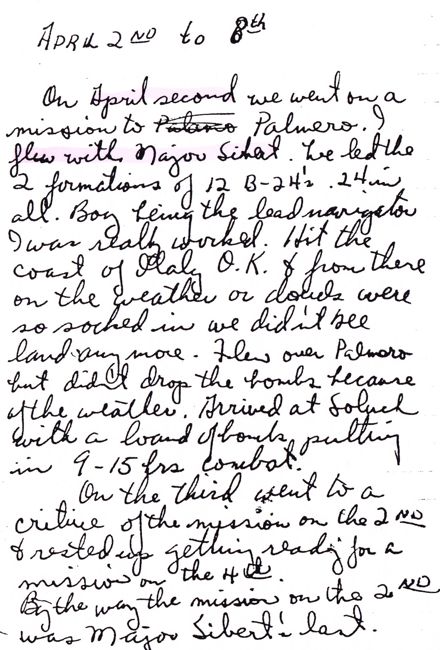 April 2ND to 8th
On April second we went on a
mission to Palmero. I
flew with Major Sibert. We led the
2 formations of 12 B-24's. 24 in
all. Boy being the lead navigator
I was really worked. Hit the
coast of Italy O.K. & from there
on the weather or clouds were
so socked in we didn't see
land any more. Flew over Palmero
but didn't drop the bombs because
of the weather. Arrived at Soluch
with a load of bombs, putting
in 9-15 hrs combat.
On the third went to a
critique of the mission on the 2ND
& rested up getting ready for a
mission on the 4th.
By the way the mission on the 2ND
was Major Sibert's last.